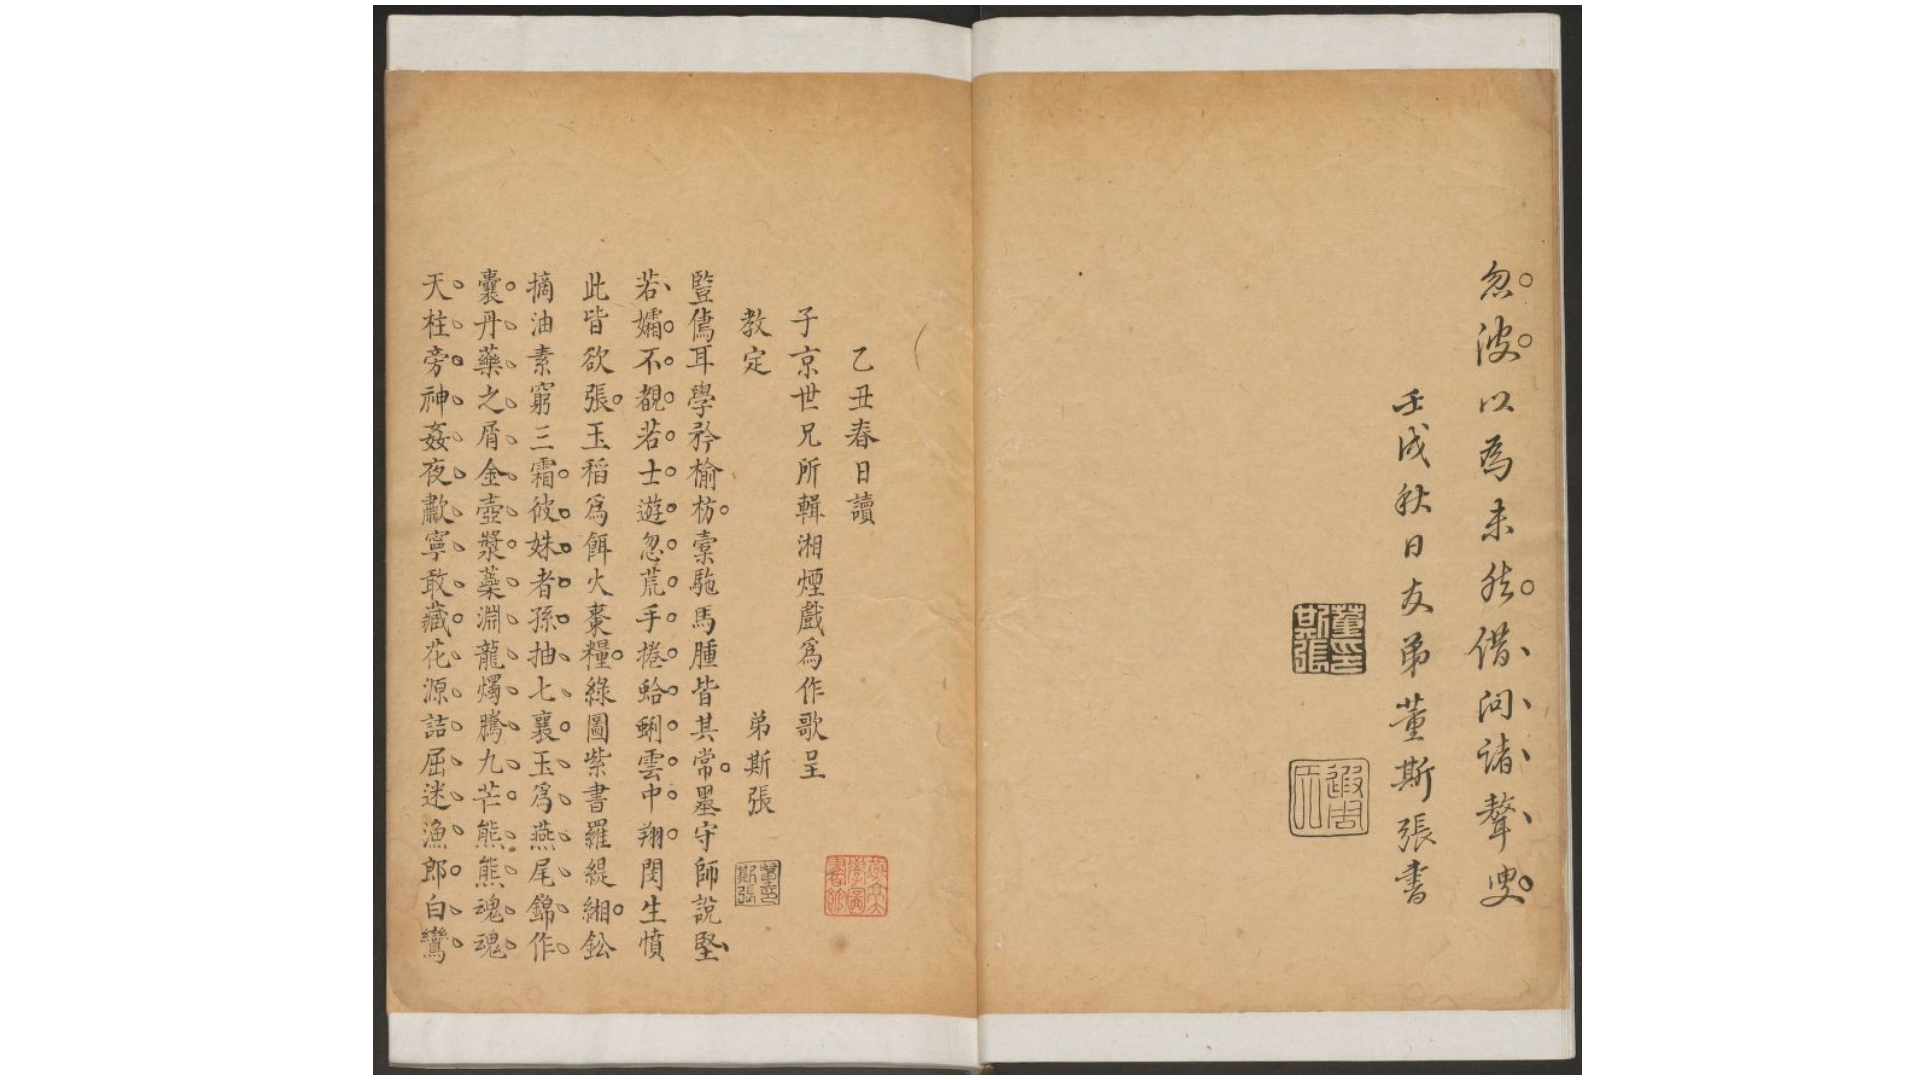 忽波以為未然借問諸聱叟
壬戌秋日友弟董斯張書
董斯張印
遐周氏
乙丑春日讀
子京世兄所輯湘煙戲爲作歌呈
教定 弟斯張
豎儁耳學矜榆枋橐駞馬腫皆其常墨守師說堅
若孀不覩若士遊忽荒手捲蛤蜊雲中翔閔生憤
此皆欲張玉稻爲餌火棗糧綠圖紫書羅緹緗鈆
摘油素窮三霜彼姝者孫抽七襄玉爲燕尾錦作
囊丹藥之屑金壺漿蘂淵龍燭騰九芒熊熊魂魂
天柱旁神姦夜歗寧敢藏花源詰屈迷漁郎白鸞